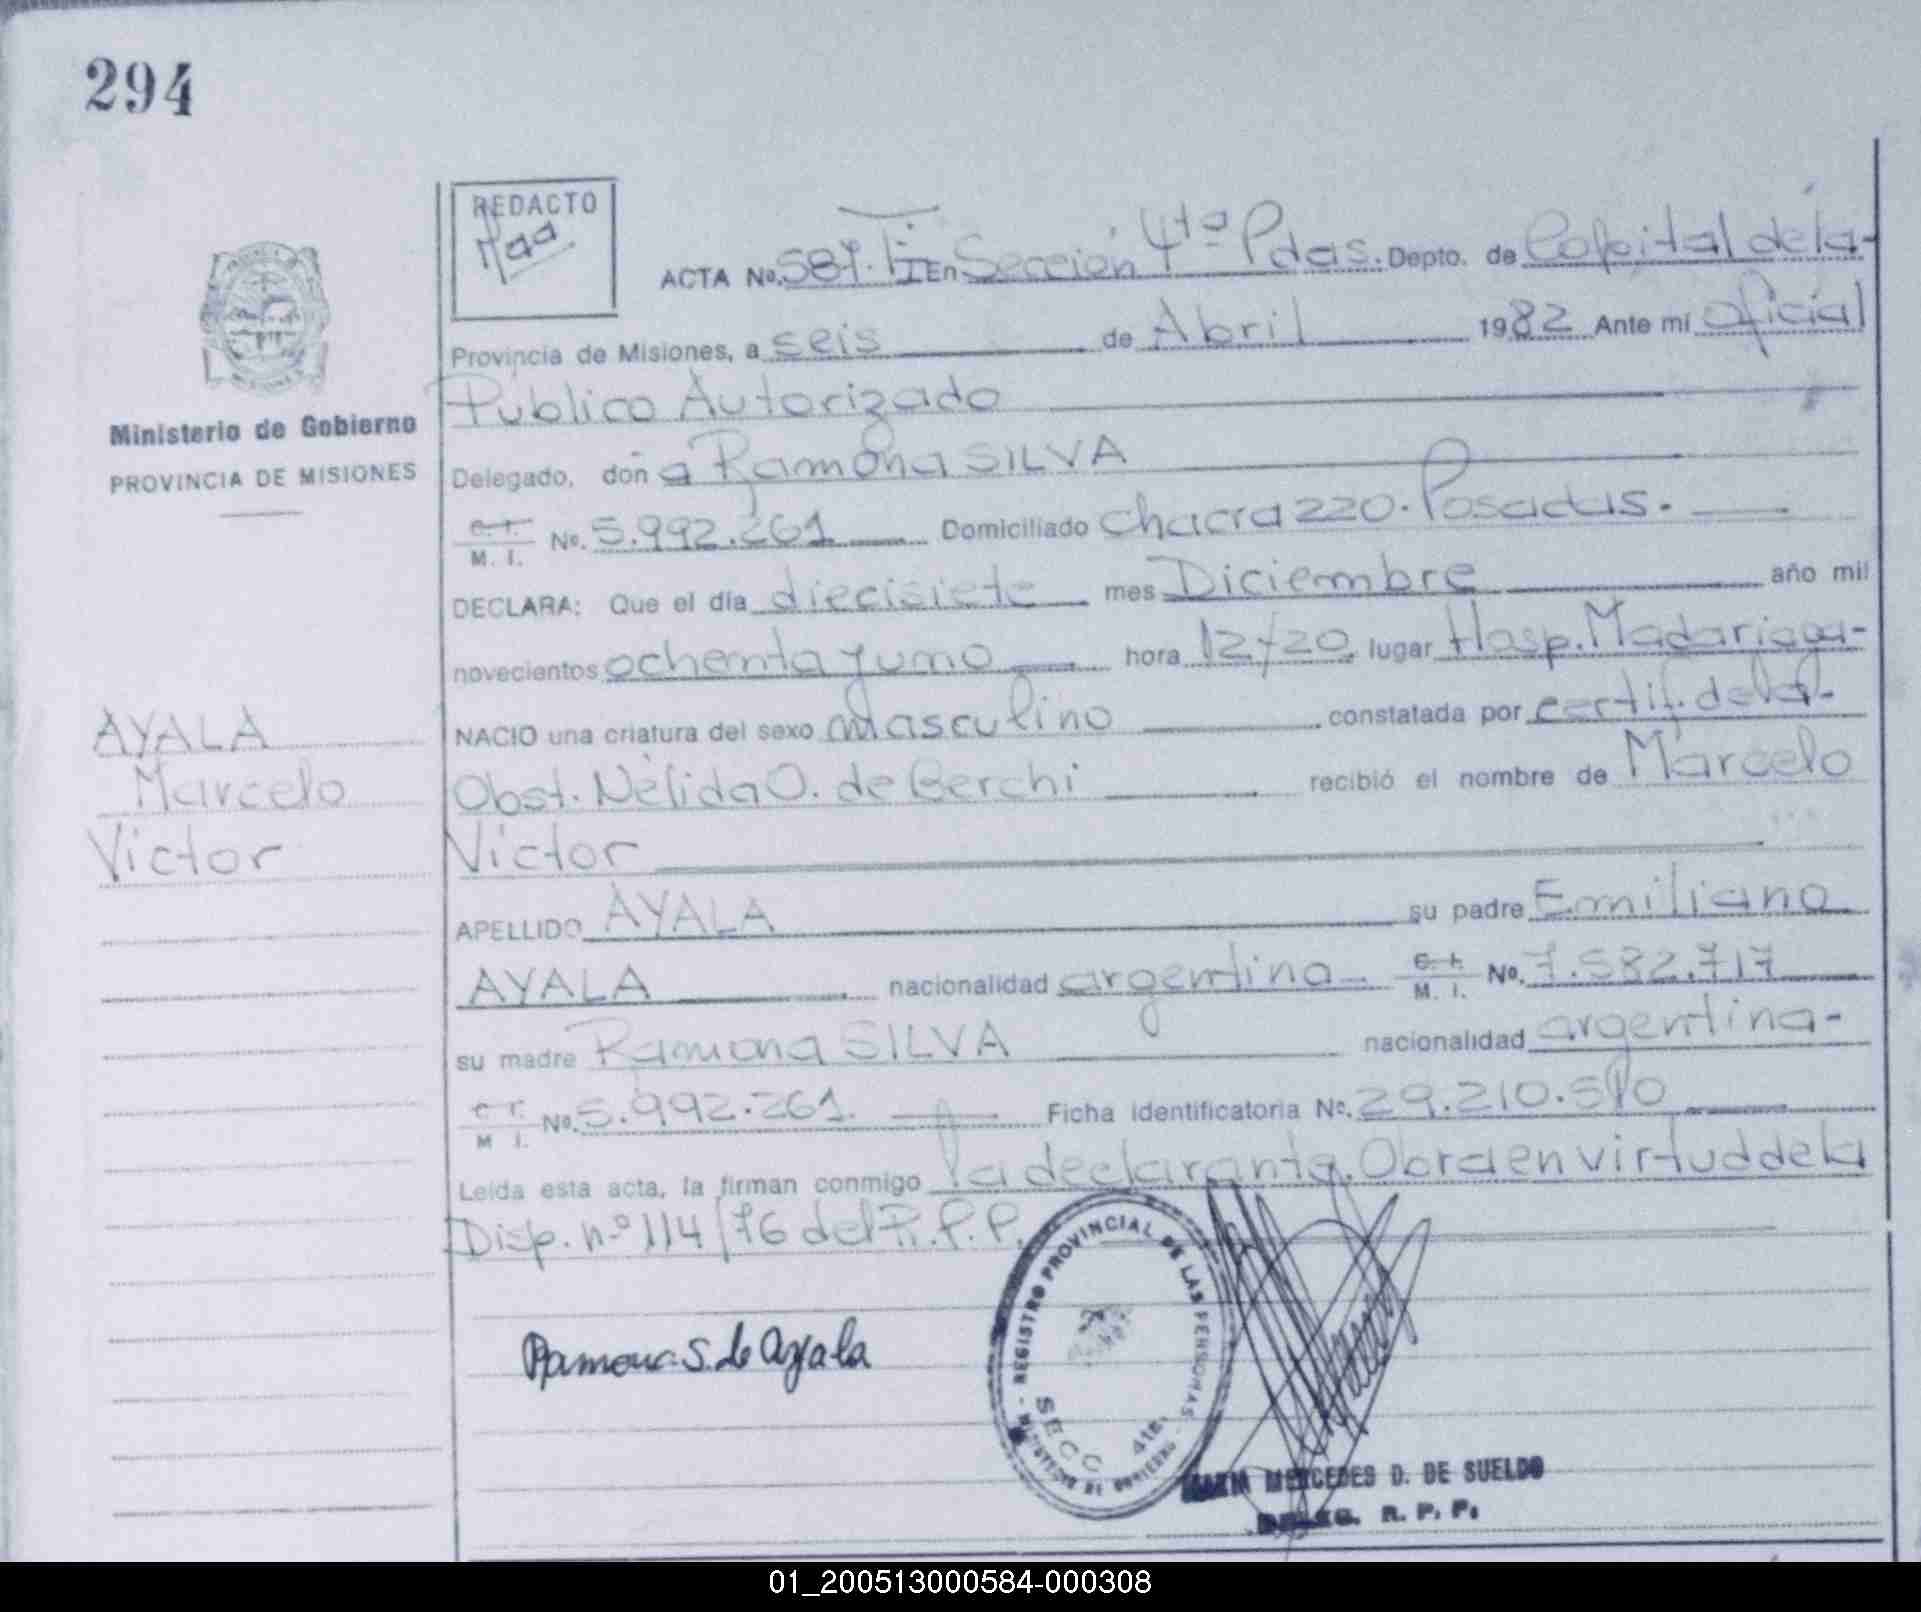 294
REDACTO
ACTA No. 587. TI En Sección 4ta Pdas. Depto. de Capital de la-
Provincia de Misiones, a seis de Abril 1982 Ante mi oficial
Público Autorizado
Ministerio de Gobierno
PROVINCIA DE MISIONES
Delegado, don a Ramona SILVA
C. I.
M. I. No. 5.992.261 Domiciliado Chacra 220. Posadas.
DECLARA: Que el día diecisiete mes Diciembre año mil
novecientos ochenta y uno hora 12/20 lugar Hosp. Madariaga-
AYALA
NACIO una criatura del sexo masculino constatada por certif. de la
Marcelo
Obst. Nélida O. de Berchi recibió el nombre de Marcelo
Victor
Victor
APELLIDO AYALA su padre Emiliano
AYALA nacionalidad argentina C. I.
M. I. No. 7.582.717
su madre Ramona SILVA nacionalidad argentina-
C. I.
M. I. No. 5.992.261. Ficha identificatoria No. 29.210.510
Leída esta acta, la firman conmigo la declarante. Obra en virtud de la
Disp. nº 114/76 del R.P.P.
Ramona S. de Ayala
REGISTRO PROVINCIAL DE LAS PERSONAS
MINISTERIO DE GOBIERNO
SECC 4ta.
MARIA MERCEDES D. DE SUELDO
DELEG. R. P. P.
01_200513000584-000308